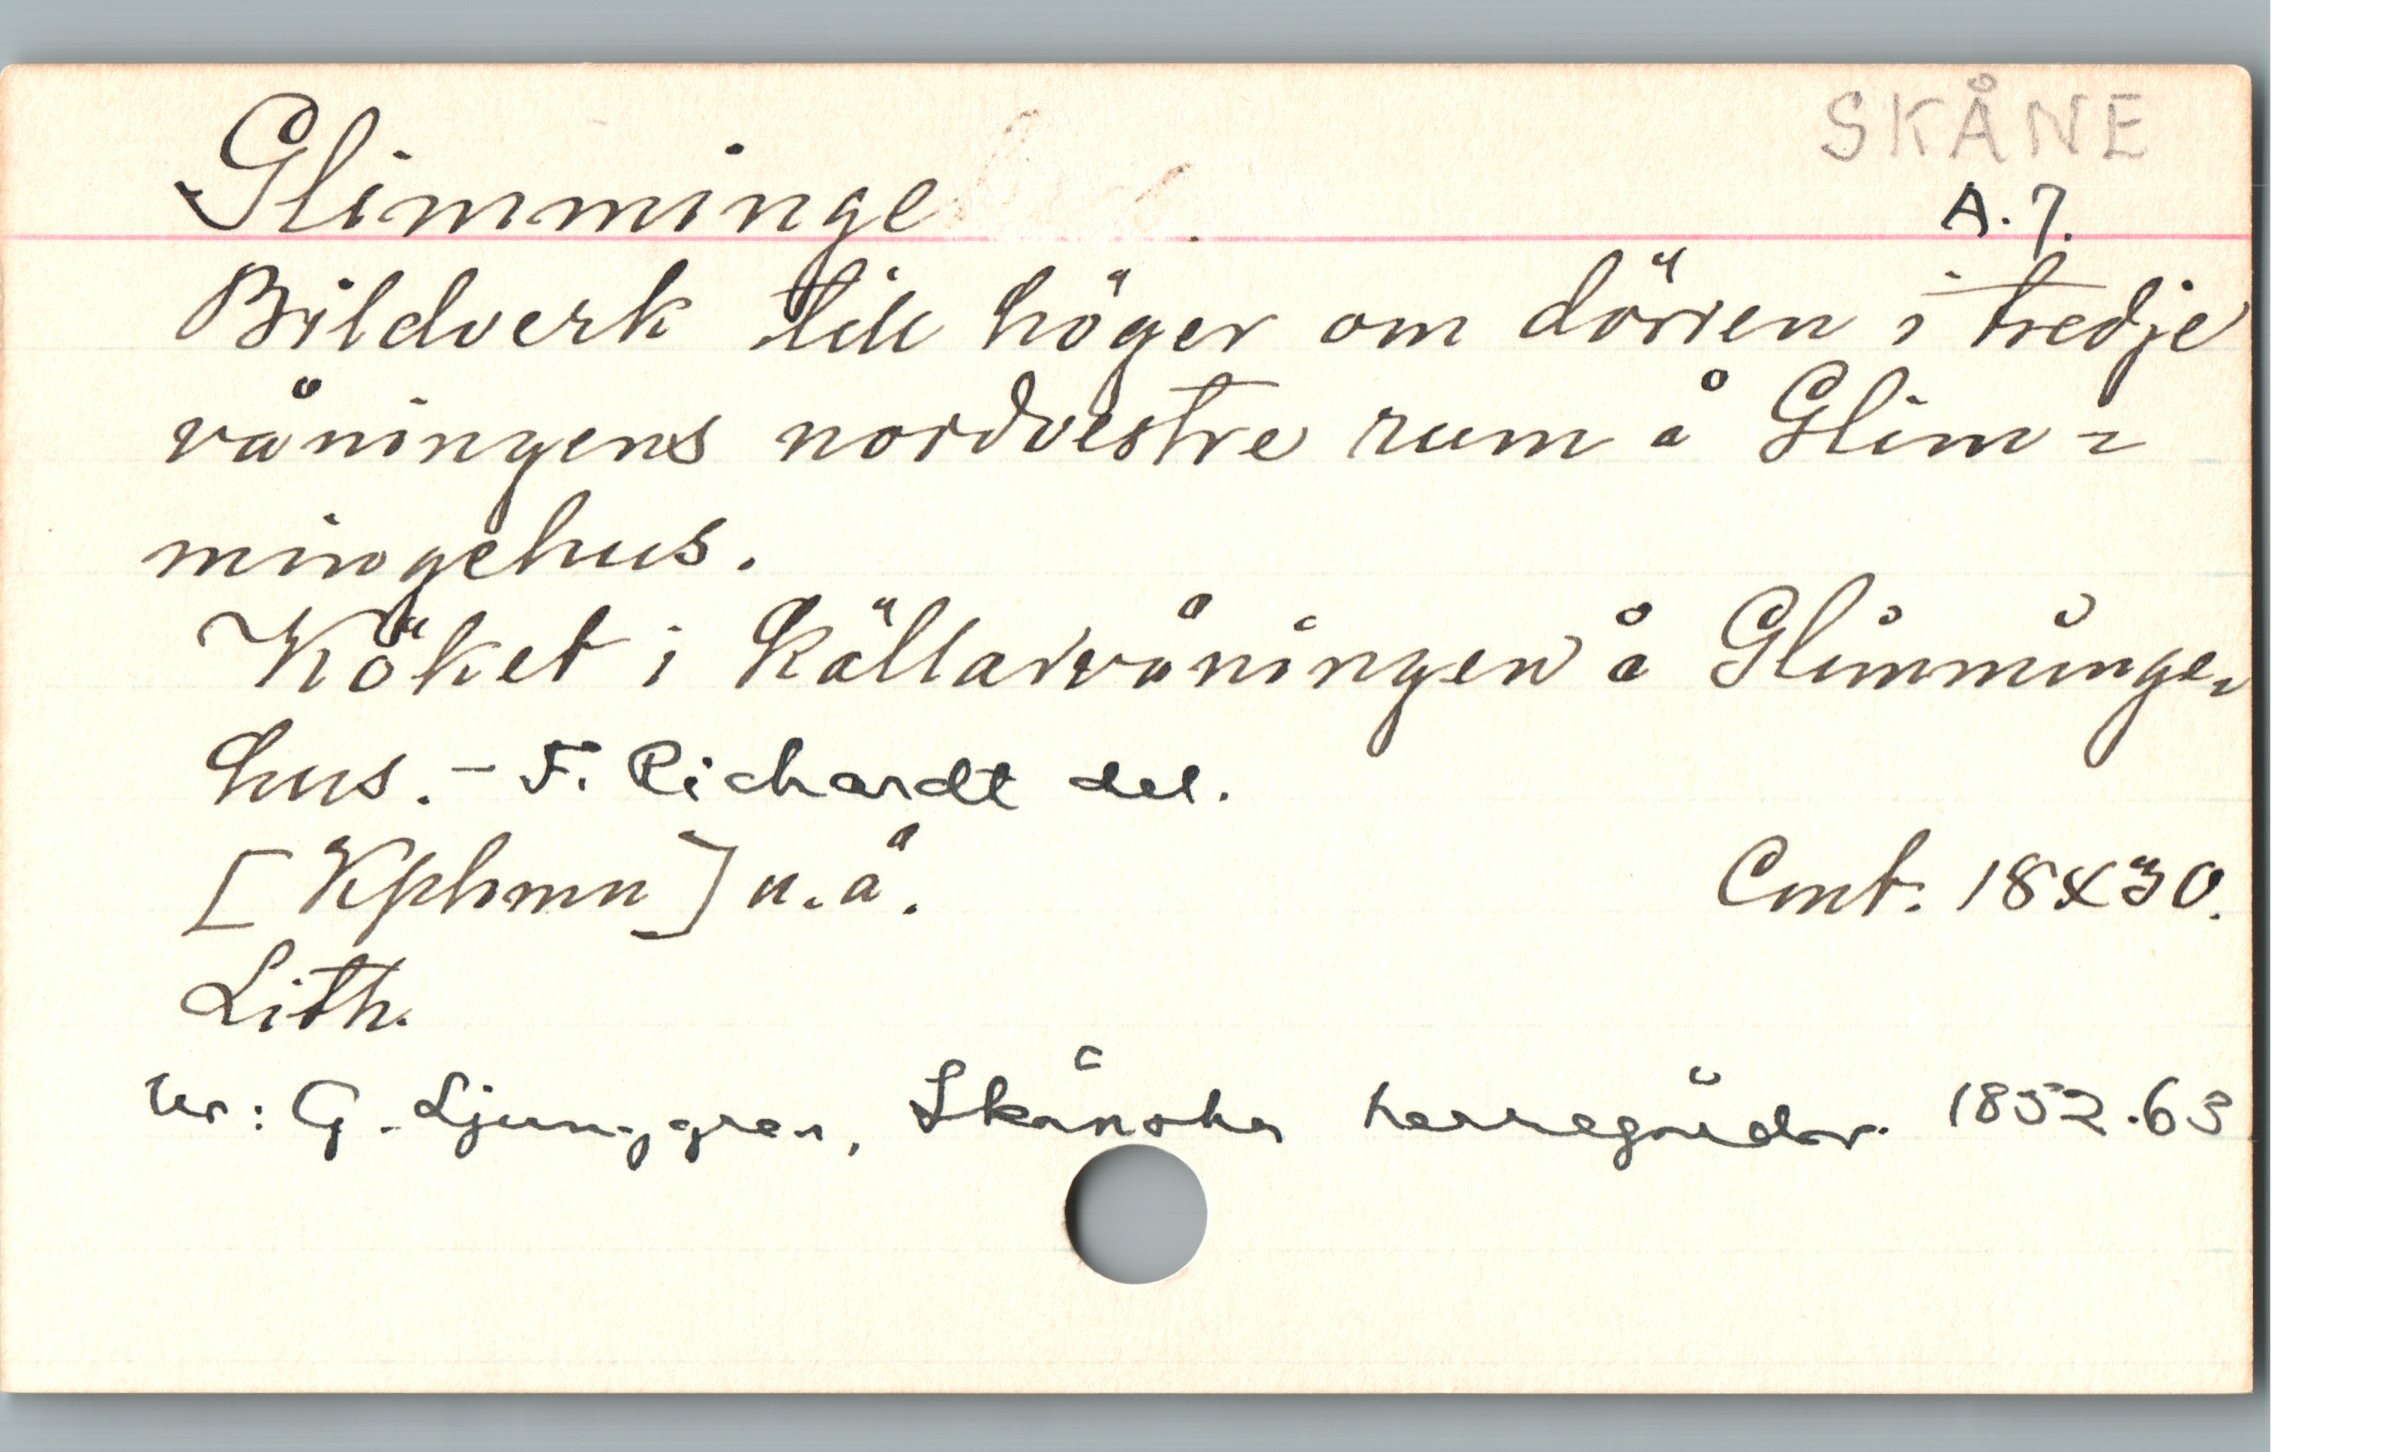 SKÅNE
Glimminge
A. 7.
Bildverk till höger om dörren i tredje
våningens nordvestre rum å Glim-
mingehus.
Köket i Källarvåningen å Glimminge-
hus. - F. Richardt del.
[Kphmn] u. å. Cmt. 18x30.
Lith.
Ur: G. Ljunggren, Skånska herregårdar. 1852-63